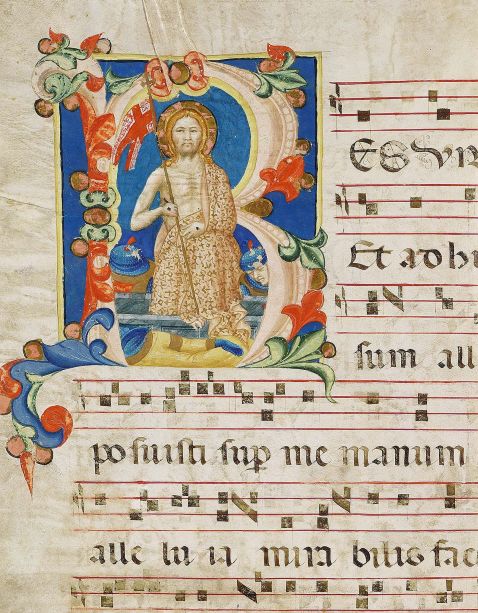 RESUR
Et ad hu
sum alle
posuisti sup me manum
alle lu ia mira bilis fac